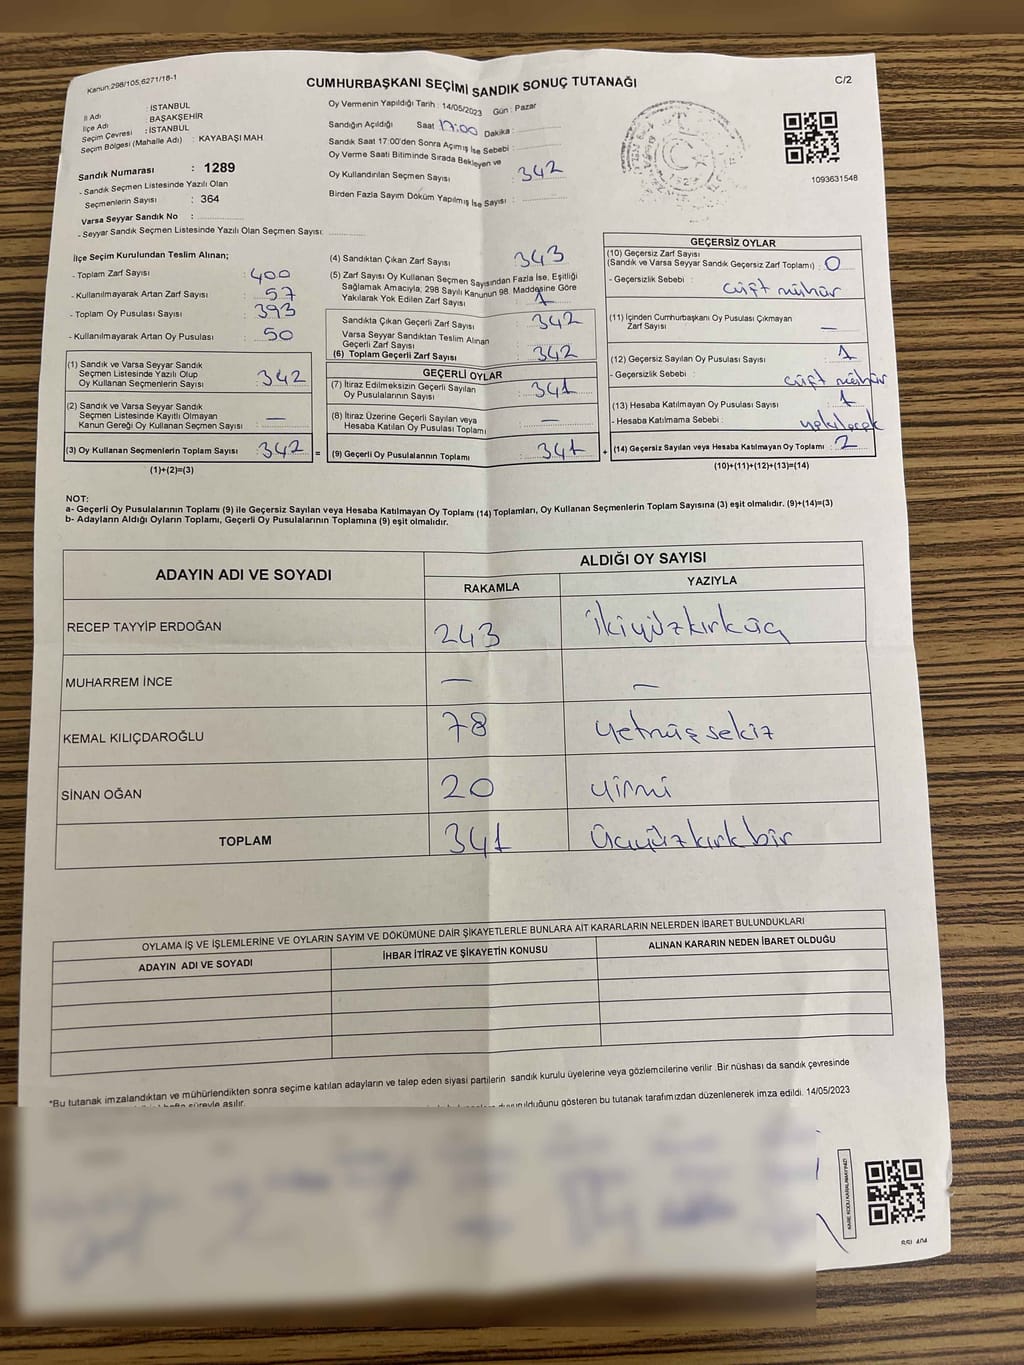 Kanun:298/105,6271/18-1
CUMHURBAŞKANI SEÇİMİ SANDIK SONUÇ TUTANAĞI
C/2
İl Adı : İSTANBUL
İlçe Adı : BAŞAKŞEHİR
Seçim Çevresi : İSTANBUL
Seçim Bölgesi (Mahalle Adı) : KAYABAŞI MAH
Sandık Numarası : 1289
- Sandık Seçmen Listesinde Yazılı Olan
Seçmenlerin Sayısı : 364
Varsa Seyyar Sandık No :
- Seyyar Sandık Seçmen Listesinde Yazılı Olan Seçmen Sayısı:
Oy Vermenin Yapıldığı Tarih : 14/05/2023 Gün : Pazar
Sandığın Açıldığı Saat 17:00 Dakika :
Sandık Saat 17:00'den Sonra Açımış İse Sebebi :
Oy Verme Saati Bitiminde Sırada Bekleyen ve
Oy Kullandırılan Seçmen Sayısı : 342
Birden Fazla Sayım Döküm Yapılmış İse Sayısı :
1093631548
İlçe Seçim Kurulundan Teslim Alınan;
- Toplam Zarf Sayısı : 400
- Kullanılmayarak Artan Zarf Sayısı : 57
- Toplam Oy Pusulası Sayısı : 393
- Kullanılmayarak Artan Oy Pusulası : 50
(1) Sandık ve Varsa Seyyar Sandık
Seçmen Listesinde Yazılı Olup
Oy Kullanan Seçmenlerin Sayısı : 342
(2) Sandık ve Varsa Seyyar Sandık
Seçmen Listesinde Kayıtlı Olmayan
Kanun Gereği Oy Kullanan Seçmen Sayısı : —
(3) Oy Kullanan Seçmenlerin Toplam Sayısı : 342 =
(1)+(2)=(3)
(4) Sandıktan Çıkan Zarf Sayısı : 343
(5) Zarf Sayısı Oy Kullanan Seçmen Sayısından Fazla İse, Eşitliği
Sağlamak Amacıyla, 298 Sayılı Kanunun 98. Maddesine Göre
Yakılarak Yok Edilen Zarf Sayısı : 1
Sandıkta Çıkan Geçerli Zarf Sayısı : 342
Varsa Seyyar Sandıktan Teslim Alınan
Geçerli Zarf Sayısı
(6) Toplam Geçerli Zarf Sayısı : 342
GEÇERLİ OYLAR
(7) İtiraz Edilmeksizin Geçerli Sayılan
Oy Pusulalarının Sayısı : 341
(8) İtiraz Üzerine Geçerli Sayılan veya
Hesaba Katılan Oy Pusulası Toplamı : —
(9) Geçerli Oy Pusulalarının Toplamı : 341 +
GEÇERSİZ OYLAR
(10) Geçersiz Zarf Sayısı
(Sandık ve Varsa Seyyar Sandık Geçersiz Zarf Toplamı) : 0
- Geçersizlik Sebebi : çift mühür
(11) İçinden Cumhurbaşkanı Oy Pusulası Çıkmayan
Zarf Sayısı : —
(12) Geçersiz Sayılan Oy Pusulası Sayısı : 1
- Geçersizlik Sebebi : çift mühür
(13) Hesaba Katılmayan Oy Pusulası Sayısı : 1
- Hesaba Katılmama Sebebi : yakılacak
(14) Geçersiz Sayılan veya Hesaba Katılmayan Oy Toplamı : 2
(10)+(11)+(12)+(13)=(14)
NOT:
a- Geçerli Oy Pusulalarının Toplamı (9) ile Geçersiz Sayılan veya Hesaba Katılmayan Oy Toplamı (14) Toplamları, Oy Kullanan Seçmenlerin Toplam Sayısına (3) eşit olmalıdır. (9)+(14)=(3)
b- Adayların Aldığı Oyların Toplamı, Geçerli Oy Pusulalarının Toplamına (9) eşit olmalıdır.
ADAYIN ADI VE SOYADI ALDIĞI OY SAYISI
RAKAMLA YAZIYLA
RECEP TAYYİP ERDOĞAN 243 ikiyüzkırküç
MUHARREM İNCE — —
KEMAL KILIÇDAROĞLU 78 yetmişsekiz
SİNAN OĞAN 20 yirmi
TOPLAM 341 üçyüzkırkbir
OYLAMA İŞ VE İŞLEMLERİNE VE OYLARIN SAYIM VE DÖKÜMÜNE DAİR ŞİKAYETLERLE BUNLARA AİT KARARLARIN NELERDEN İBARET BULUNDUKLARI
ADAYIN ADI VE SOYADI İHBAR İTİRAZ VE ŞİKAYETİN KONUSU ALINAN KARARIN NEDEN İBARET OLDUĞU
*Bu tutanak imzalandıktan ve mühürlendikten sonra seçime katılan adayların ve talep eden siyasi partilerin sandık kurulu üyelerine veya gözlemcilerine verilir. Bir nüshası da sandık çevresinde
hafta süreyle asılır.
duyurulduğunu gösteren bu tutanak tarafımızdan düzenlenerek imza edildi. 14/05/2023
KARE KODU KARALAMAYINIZ!